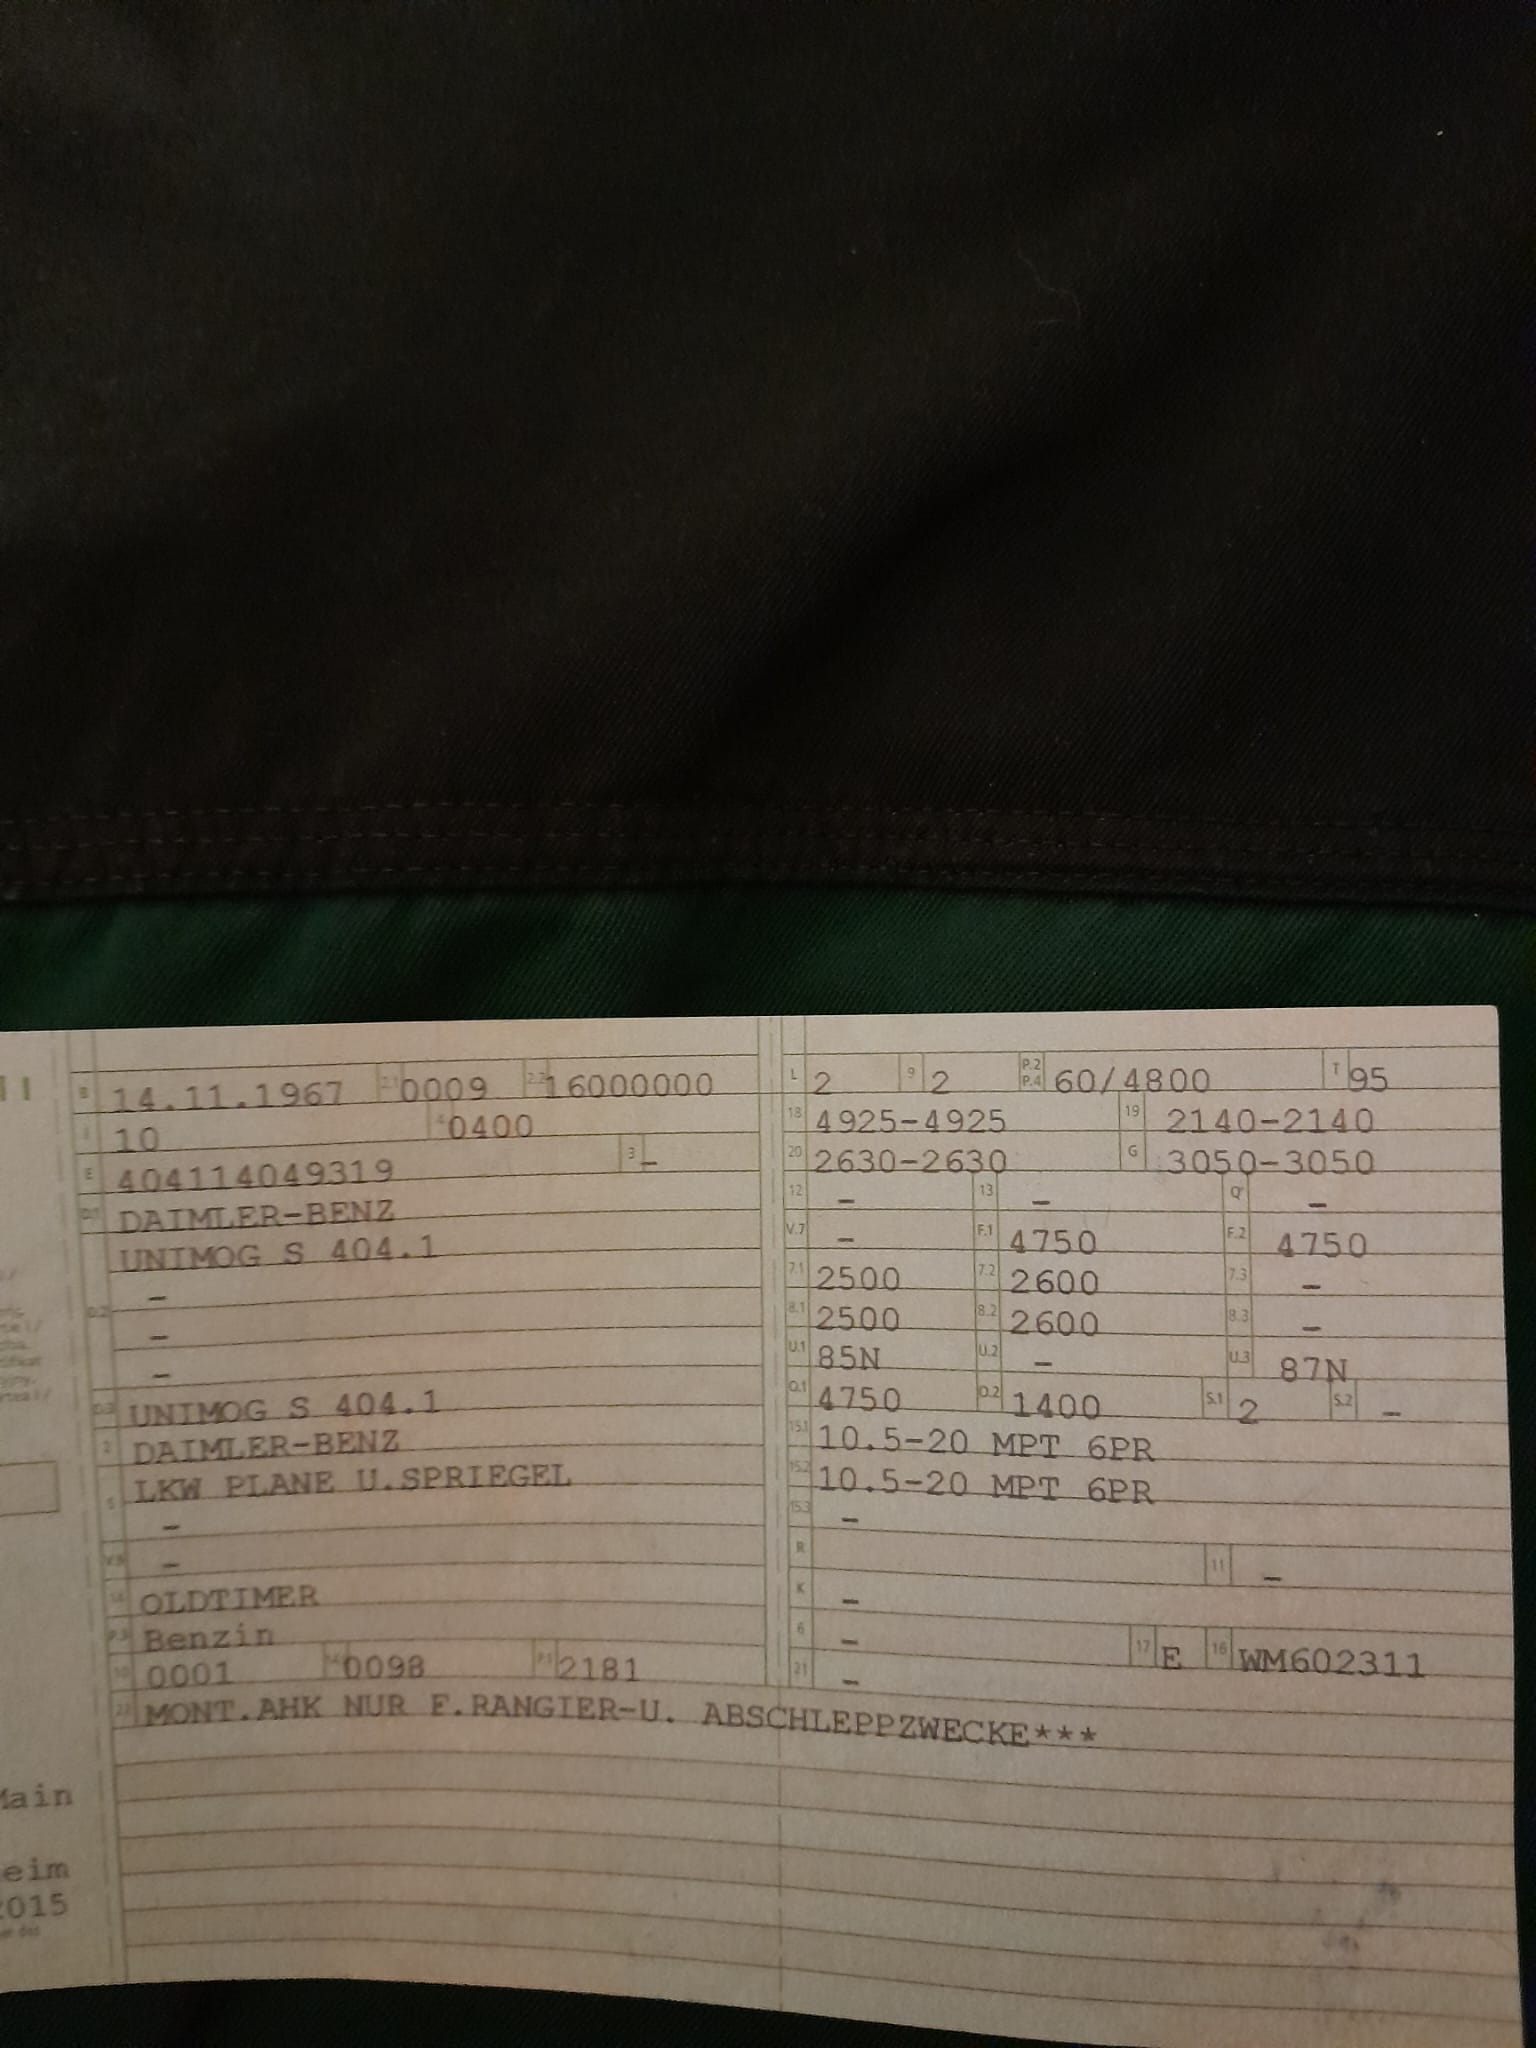 B 14.11.1967 2.1 0009 2.2 16000000
J 10 4 0400
E 404114049319 3 –
D.1 DAIMLER-BENZ
UNIMOG S 404.1
D.2 –
–
–
D.3 UNIMOG S 404.1
2 DAIMLER-BENZ
5 LKW PLANE U.SPRIEGEL
–
V.9 –
14 OLDTIMER
P.3 Benzin
10 0001 14.1 0098 P.1 2181
L 2 9 2 P.2 P.4 60/4800 T 95
18 4925-4925 19 2140-2140
20 2630-2630 G 3050-3050
12 – 13 – Q –
V.7 – F.1 4750 F.2 4750
7.1 2500 7.2 2600 7.3 –
8.1 2500 8.2 2600 8.3 –
U.1 85N U.2 – U.3 87N
O.1 4750 O.2 1400 S.1 2 S.2 –
15.1 10.5-20 MPT 6PR
15.2 10.5-20 MPT 6PR
15.3 –
R 11 –
K –
6 – 17 E 16 WM602311
21 –
22 MONT.AHK NUR F.RANGIER-U. ABSCHLEPPZWECKE***
Main
eim
2015